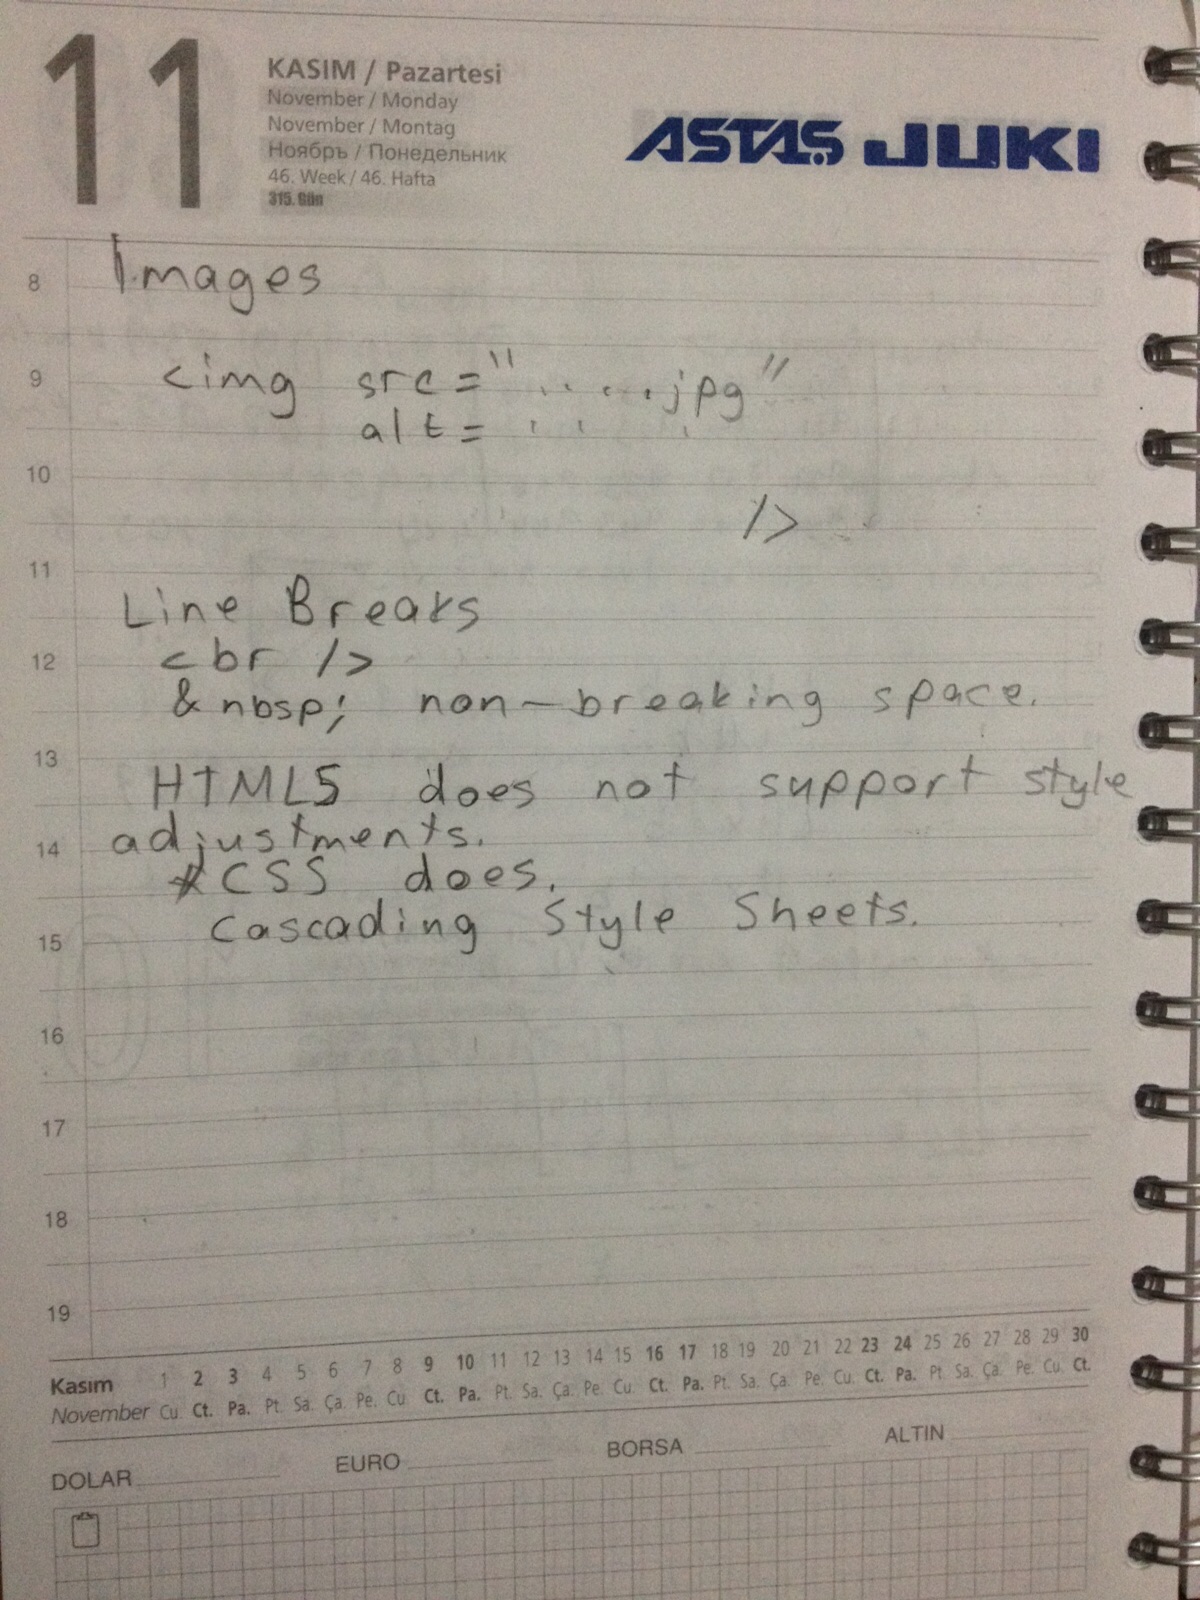 11
KASIM / Pazartesi
November / Monday
November / Montag
Ноябрь / Понедельник
46. Week / 46. Hafta
315. Gün
ASTAŞ JUKI
8
Images
9
<img src="......jpg"
alt= ' ' '
10
/>
11
Line Breaks
12
<br />
&nbsp; non-breaking space.
13
HTML5 does not support style
14
adjustments.
*CSS does.
15
Cascading Style Sheets.
16
17
18
19
Kasım 1 2 3 4 5 6 7 8 9 10 11 12 13 14 15 16 17 18 19 20 21 22 23 24 25 26 27 28 29 30
November Cu. Ct. Pa. Pt. Sa. Ça. Pe. Cu. Ct. Pa. Pt. Sa. Ça. Pe. Cu. Ct. Pa. Pt. Sa. Ça. Pe. Cu. Ct. Pa. Pt. Sa. Ça. Pe. Cu. Ct.
DOLAR EURO BORSA ALTIN